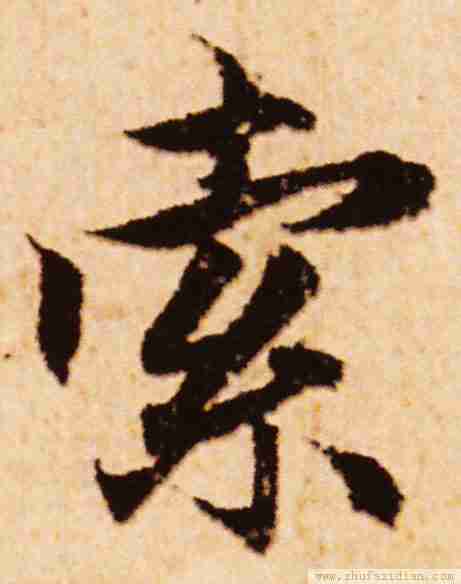 索
www.zhufazidian.com